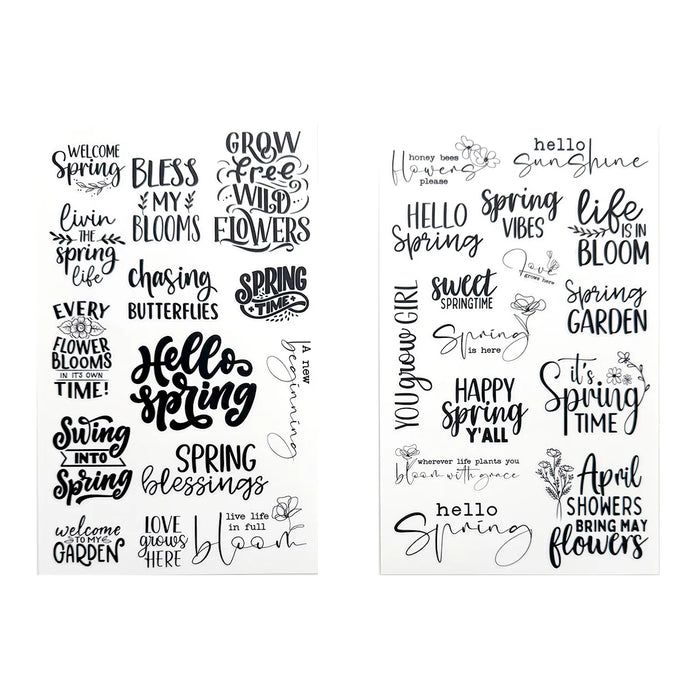 WELCOME
Spring
BLESS
MY
BLOOMS
GROW
free
WILD
FLOWERS
livin
THE
spring
life
chasing
BUTTERFLIES
SPRING
TIME
EVERY
FLOWER
BLOOMS
IN IT'S OWN
TIME!
Hello
spring
A new
beginning
Swing
INTO
Spring
SPRING
blessings
welcome
TO MY
GARDEN
LOVE
grows
HERE
live life
in full
bloom
honey bees
flowers
please
hello
sunshine
HELLO
Spring
spring
VIBES
life
IS IN
BLOOM
Love
grows here
sweet
SPRINGTIME
Spring
GARDEN
YOU grow GIRL
Spring
is here
HAPPY
spring
Y'ALL
it's
Spring
TIME
wherever life plants you
bloom with grace
hello
Spring
April
SHOWERS
BRING MAY
flowers